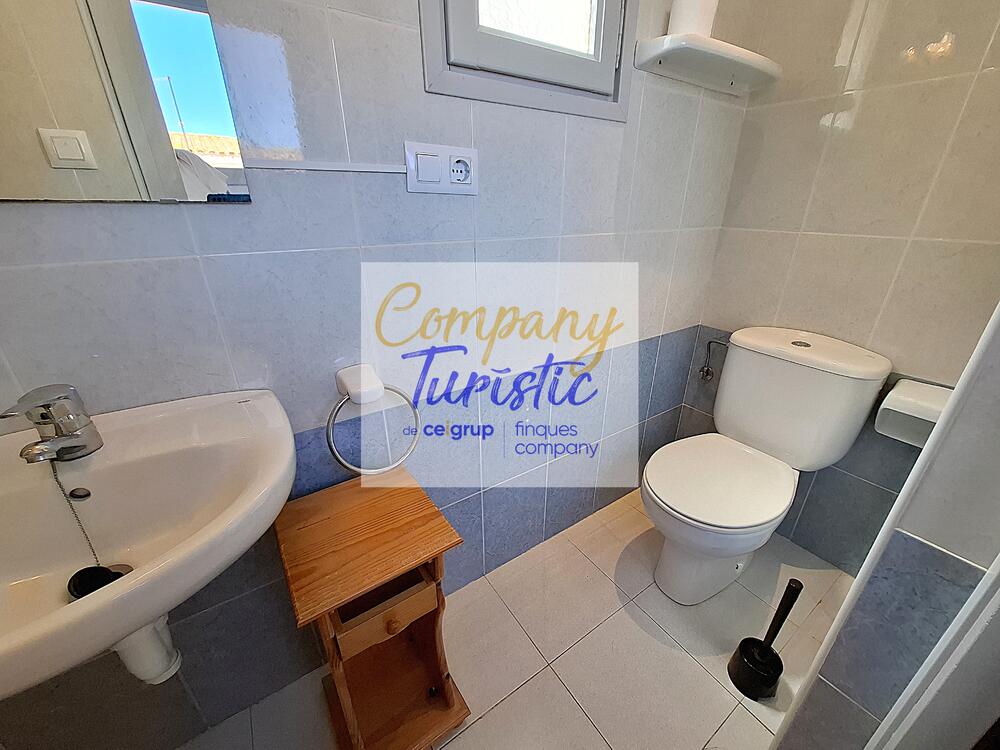 Company
Turístic
de ce|grup | finques
company